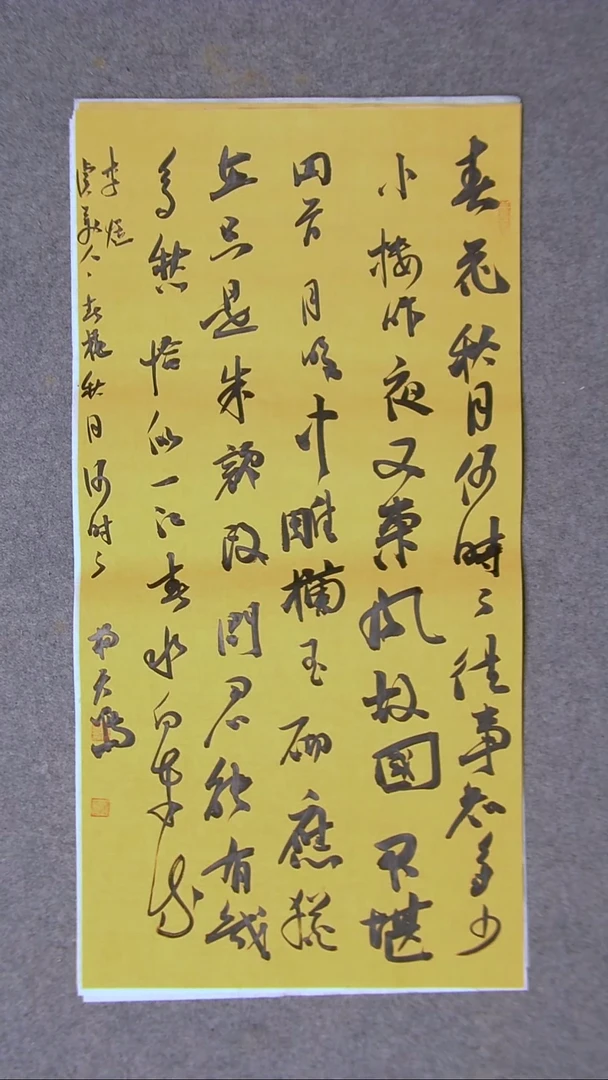 春花秋月何時了往事知多少
小樓昨夜又東風故國不堪
回首月明中雕欄玉砌應猶
在只是朱顏改問君能有幾
多愁恰似一江春水向東流
李煜
虞美人、春花秋月何時了